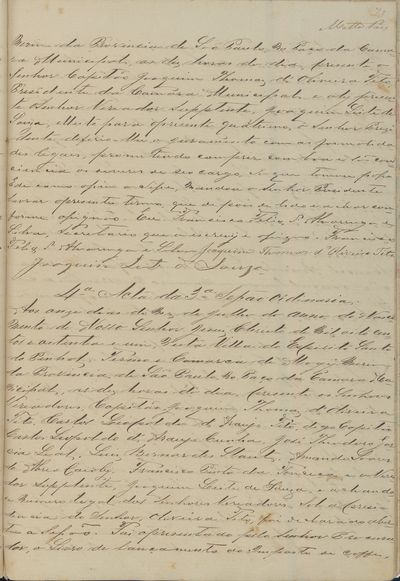 Motta Paes
Mirim da Provincia de São Paulo No Paço da Cama-
ra Municipal, as dez horas do dia, presente o
Senhor Capitão Joaquim Thomaz de Oliveira Pito
Presidente da Camara Municipal e ahi presen-
te o Senhor Vereador Supplente Joaquim Leite de
Souza, eleito para o presente quatrienio, o Senhor Presi-
dente deferio-lhe o juramento com as formalida-
des legaes, promettendo cumprir com boa e sã con-
ciencia os deveres de seu cargo, do que tomou posse
E de como assim o disse, mandou o Senhor Presidente
lavrar o presente termo, que depois de lido e achar con-
forme assignão. Eu Francisco Felix d' Alvarenga e
Silva, Secretario que o escrevi e assigno. Francisco
Felix d' Alvarenga e Silva Joaquim Thomaz d' Oliveira Pito
Joaquim Leite de Souza
4ª Acta da 3ª Sessão Ordinaria.
Aos onze de Julho do anno do Nasci-
mento de Nosso Senhor Jesus Christo de Mil oito centos
e oitenta e um, Nesta Villa do Espirito Santo
do Pinhal, Termo e Comarca de Mogi Mirim
da Provincia de São Paulo, No Paço da Camara Mu-
nicipal, as dez horas do dia, Presente os Senhores
Vereadores, Capitão Joaquim Thomaz de Oliveira
Pito, Carlos Leopoldo de Araujo
Carlos Leopoldo de Araujo Cunha, José Theodoro
Leal, Luiz Bernardes Amando Soares
de Francisco Pinto da Fonseca, o Verea-
dor Supplente, Joaquim Leite de Souza, e achando
o numero legal dos Senhores Vereadores, sob a Presi-
dencia do Senhor, Oliveira Pito, foi declarado aber-
ta a Sessão. Foi apresentado pelo Senhor Procura-
dor, o Livro de lançamento do Imposto